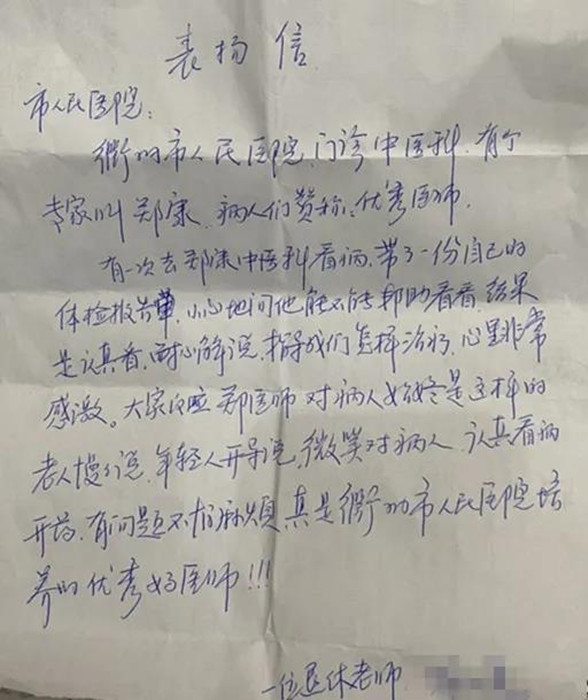 表扬信
市人民医院:
衢州市人民医院,门诊中医科,有个
专家叫郑康,病人们赞称:优秀医师.
有一次去郑康中医科看病,带了一份自己的
体检报告单,小心地问他能不能帮助看看,结果
是认真看,耐心解说,指导我们怎样治疗,心里非常
感激。大家反应郑医师对病人始终是这样的
老人慢慢说,年轻人开导说,微笑对病人,认真看病
开药,有问题不怕麻烦,真是衢州市人民医院培
养的优秀好医师!!!
一位退休老师